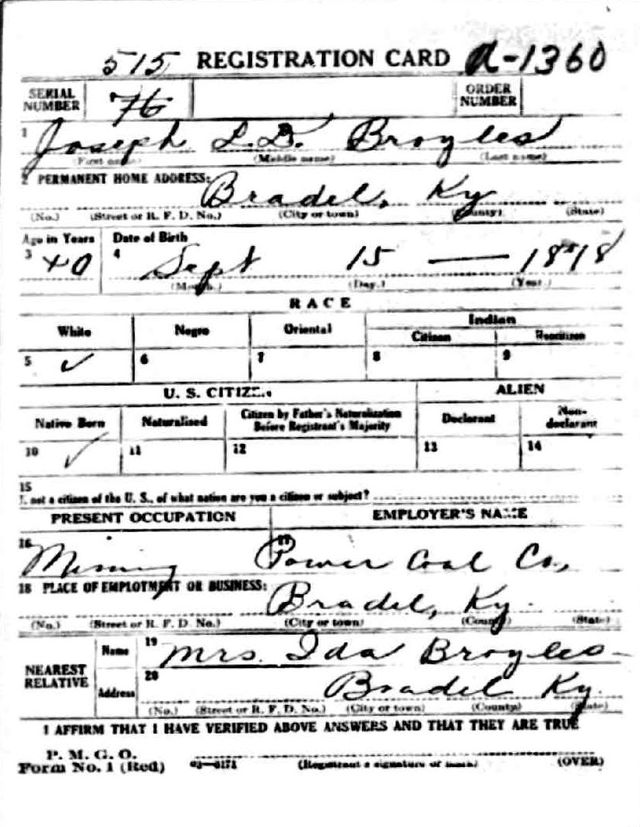 515 REGISTRATION CARD A-1360
SERIAL NUMBER 76 ORDER NUMBER
1 Joseph L.B. Broyles
(First name) (Middle name) (Last name)
2 PERMANENT HOME ADDRESS: Bradel, Ky
(No.) (Street or R. F. D. No.) (City or town) (County) (State)
Age in Years Date of Birth
3 40 4 Sept 15 — 1878
(Month.) (Day.) (Year.)
RACE
White Negro Oriental Indian
Citizen Noncitizen
5 ✓ 6 7 8 9
U. S. CITIZEN ALIEN
Native Born Naturalized Citizen by Father's Naturalization Before Registrant's Majority Declarant Non-declarant
10 ✓ 11 12 13 14
15
If not a citizen of the U. S., of what nation are you a citizen or subject?
PRESENT OCCUPATION EMPLOYER'S NAME
16 Mining 17 Power Coal Co,
18 PLACE OF EMPLOYMENT OR BUSINESS: Bradel, Ky.
(No.) (Street or R. F. D. No.) (City or town) (County) (State)
NEAREST RELATIVE Name 19 Mrs. Ida Broyles
Address 20 Bradel Ky.
(No.) (Street or R. F. D. No.) (City or town) (County) (State)
I AFFIRM THAT I HAVE VERIFIED ABOVE ANSWERS AND THAT THEY ARE TRUE
P. M. G. O.
Form No. 1 (Red) 03—6171 (Registrant's signature or mark) (OVER)